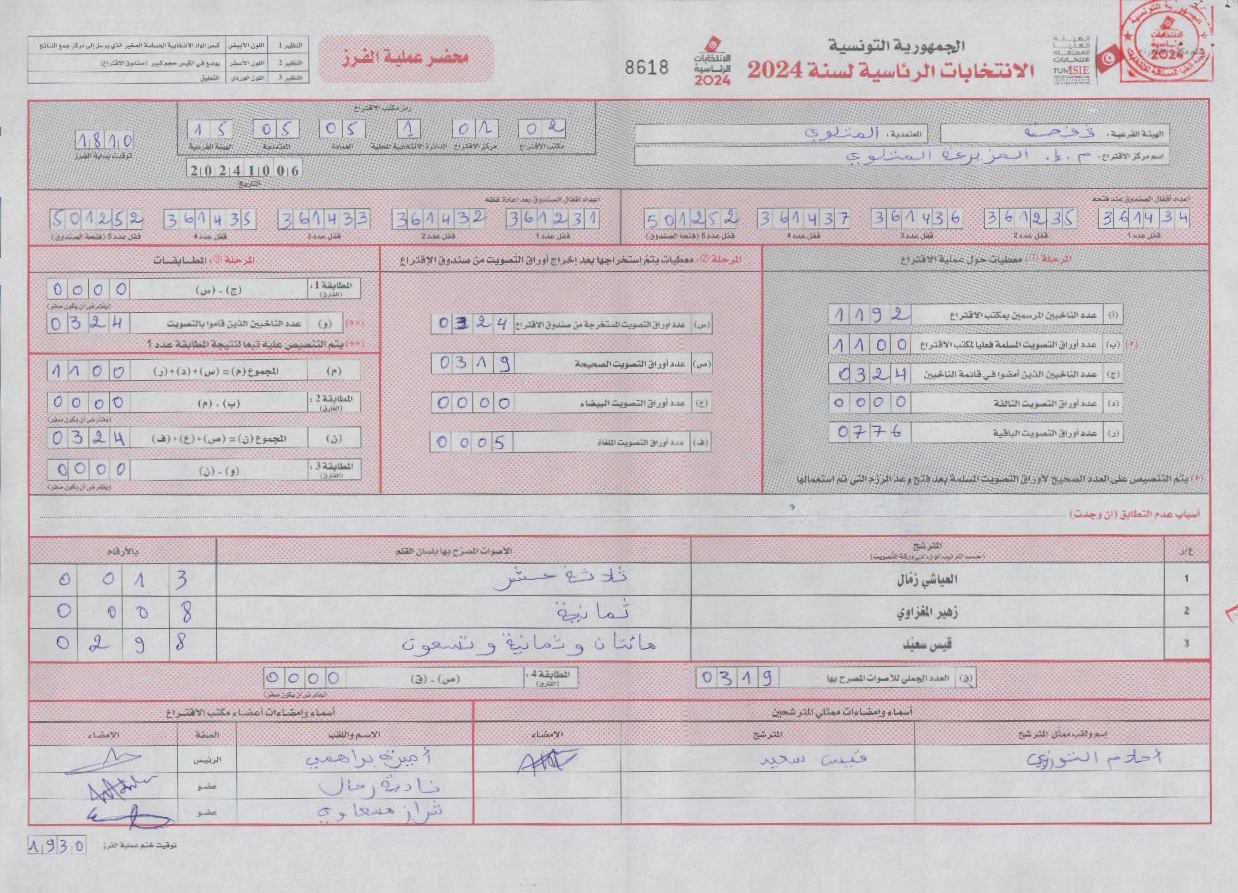 الجمهورية التونسية
الانتخابات الرئاسية لسنة 2024
الهيئة العليا المستقلة للانتخابات
TUNISIE
الانتخابات الرئاسية 2024
8618
محضر عملية الفرز
النظير 1 اللون الأبيض
النظير 2 اللون الأصفر
النظير 3 اللون الوردي التعليق
الهيئة الفرعية : قفصة
المعتمدية : المتلوي
اسم مركز الاقتراع : م.إ. المزيرعة المتلوي
رمز مكتب الاقتراع
02 01 1 05 05 15
مكتب الاقتراع مركز الاقتراع الدائرة الانتخابية المحلية العمادة المعتمدية الهيئة الفرعية
20241006
التاريخ
1810
توقيت بداية الفرز
أعداد أقفال الصندوق عند فتحه
361434 361235 361436 361437 501252
قفل عدد 1 قفل عدد 2 قفل عدد 3 قفل عدد 4 قفل عدد 5 (فتحة الصندوق)
أعداد أقفال الصندوق بعد إعادة غلقه
361231 361432 361433 361435 501252
قفل عدد 1 قفل عدد 2 قفل عدد 3 قفل عدد 4 قفل عدد 5 (فتحة الصندوق)
المرحلة (1): معطيات حول عملية الاقتراع
(أ) عدد الناخبين المرسمين بمكتب الاقتراع 1192
(*) (ب) عدد أوراق التصويت المسلمة فعليا لمكتب الاقتراع 1100
(ج) عدد الناخبين الذين أمضوا في قائمة الناخبين 0324
(د) عدد أوراق التصويت التالفة 0000
(ر) عدد أوراق التصويت الباقية 0776
(*) يتم التنصيص على العدد الصحيح لأوراق التصويت المسلمة بعد فتح وعد الرزم التي تم استعمالها
المرحلة (2): معطيات يتم استخراجها بعد إخراج أوراق التصويت من صندوق الإقتراع
(س) عدد أوراق التصويت المستخرجة من صندوق الاقتراع 0324
(ص) عدد أوراق التصويت الصحيحة 0319
(ع) عدد أوراق التصويت البيضاء 0000
(ف) عدد أوراق التصويت الملغاة 0005
المرحلة (3): المطابقات
المطابقة 1 : (الفارق) (ج) - (س) 0000
(يفترض أن يكون صفر)
(**) (و) عدد الناخبين الذين قاموا بالتصويت 0324
(**) يتم التنصيص عليه تبعا لنتيجة المطابقة عدد 1
(م) المجموع (م) = (س) + (د) + (ر) 1100
المطابقة 2 : (الفارق) (ب) - (م) 0000
(يفترض أن يكون صفر)
(ن) المجموع (ن) = (ص) + (ع) + (ف) 0324
المطابقة 3 : (الفارق) (و) - (ن) 0000
(يفترض أن يكون صفر)
أسباب عدم التطابق (إن وجدت)
ع/ر المترشح الأصوات المصرح بها بلسان القلم بالأرقام
(حسب الترتيب الوارد في ورقة التصويت)
1 العياشي زمّال ثلاثة عشر 0013
2 زهير المغزاوي ثمانية 0008
3 قيس سعيّد مائتان و ثمانية و تسعون 0298
(ق) العدد الجملي للأصوات المصرح بها 0319
المطابقة 4 : (الفارق) (ص) - (ق) 0000
(يفترض أن يكون صفر)
أسماء وإمضاءات ممثلي المترشحين
إسم ولقب ممثل المترشح المترشح الامضاء
قيس سعيد
أسماء وإمضاءات أعضاء مكتب الاقتراع
الاسم واللقب الصفة الامضاء
أميرة براهمي الرئيس
نادية رحال عضو
عضو
توقيت ختم عملية الفرز 1930